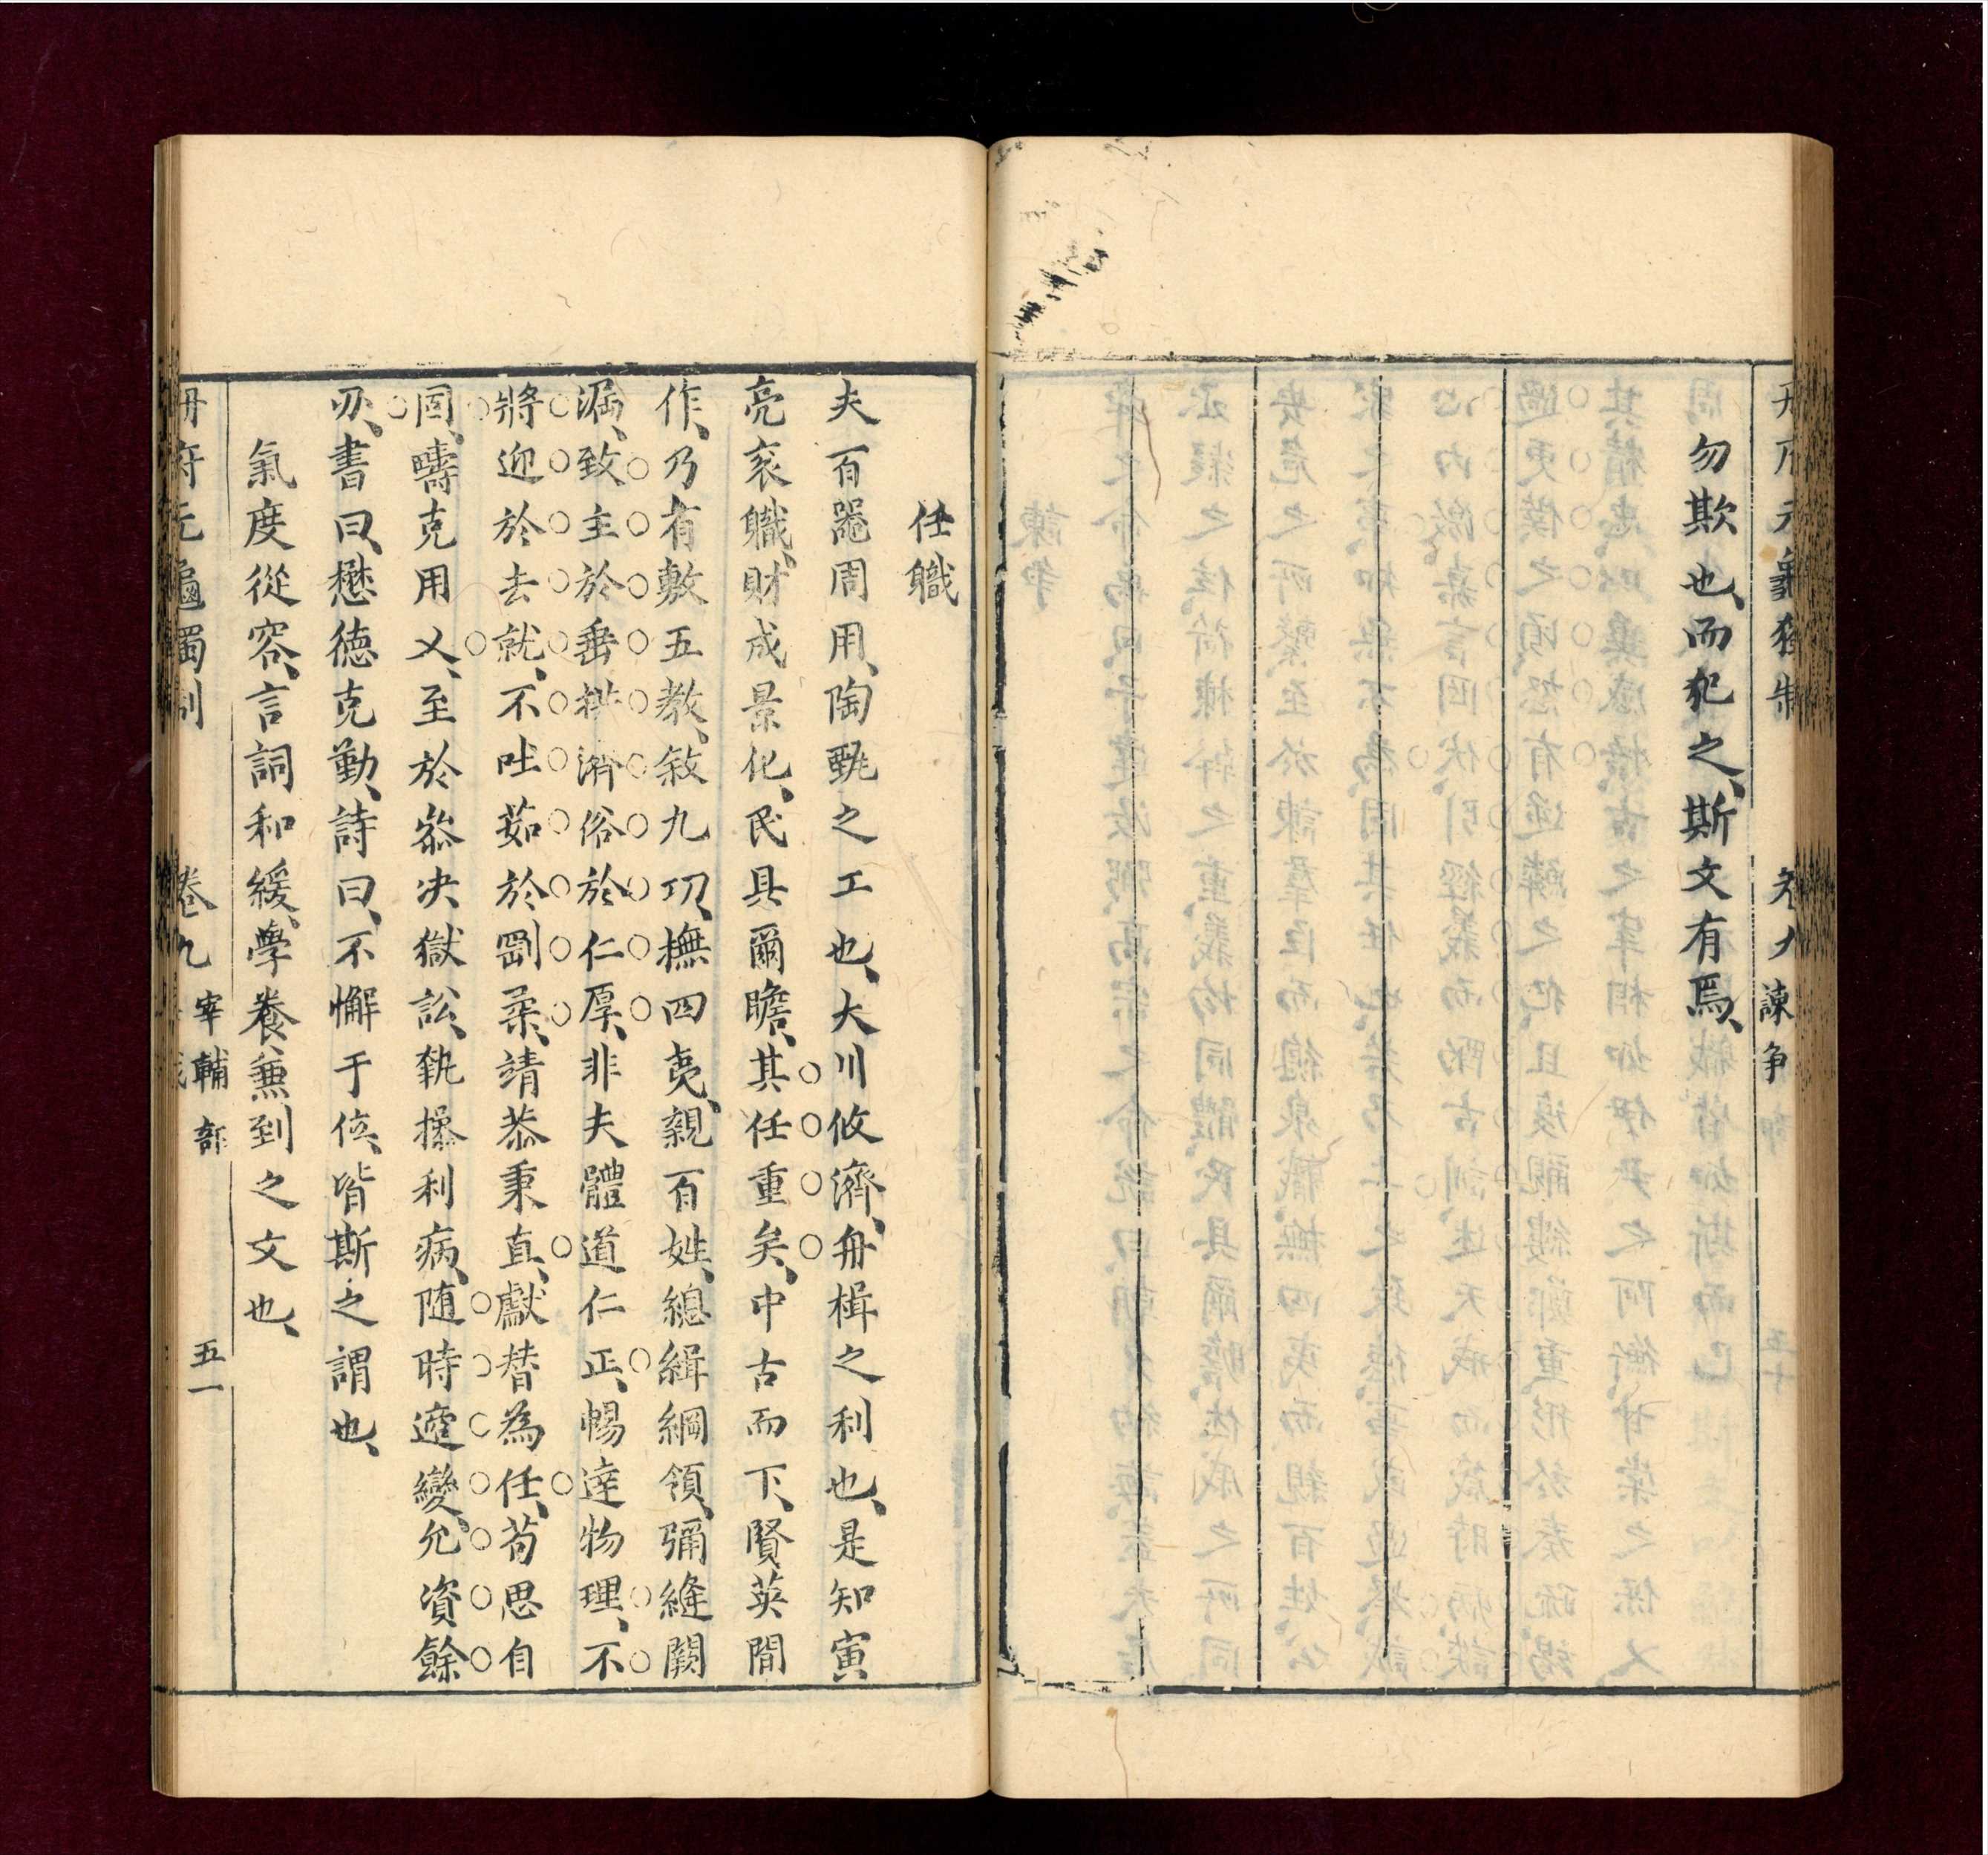 冊府元龜獨制 卷九 諫爭
勿欺也、而犯之、斯文有焉、
任職
夫百器周用、陶甄之工也、大川攸濟、舟楫之利也、是知寅
亮衮職、財成景化、民具爾瞻、其任重矣、中古而下、賢英間
作、乃有敷五教、敘九功、撫四夷、親百姓、總緝綱領、彌縫闕
漏、致主於垂拱、濟俗於仁厚、非夫體道仁正、暢達物理、不
將迎於去就、不吐茹於剛柔、靖恭秉直、獻替為任、苟思自
固、疇克用乂、至於叅决獄訟、執操利病、随時適變、允資餘
刃、書曰、懋德克勤、詩曰、不懈于位、皆斯之謂也、
氣度從容、言詞和緩、學養兼到之文也、
冊府元龜獨制 卷九 宰輔部 五一